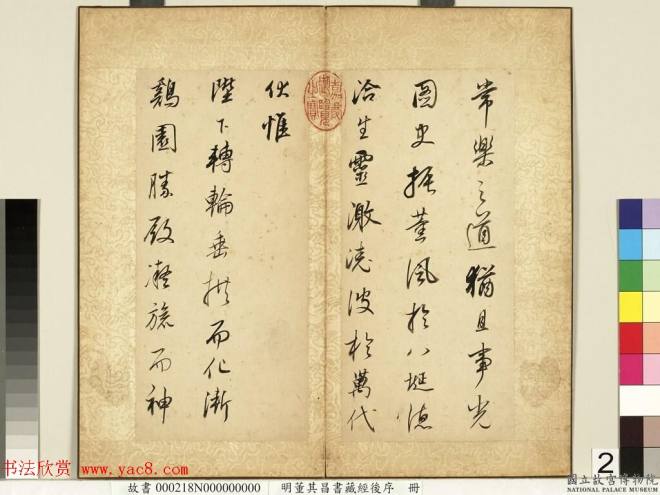 常樂之道猶且事光
圖史振薰風於八埏德
洽生靈激澆波於萬代
伏惟
陛下轉輪垂拱而化漸
鷄園勝殿凝旒而神
嘉慶御覽之寶
2
國立故宮博物院
NATIONAL PALACE MUSEUM
书法欣赏 www.yac8.com
故書 000218N000000000 明董其昌書藏經後序 冊